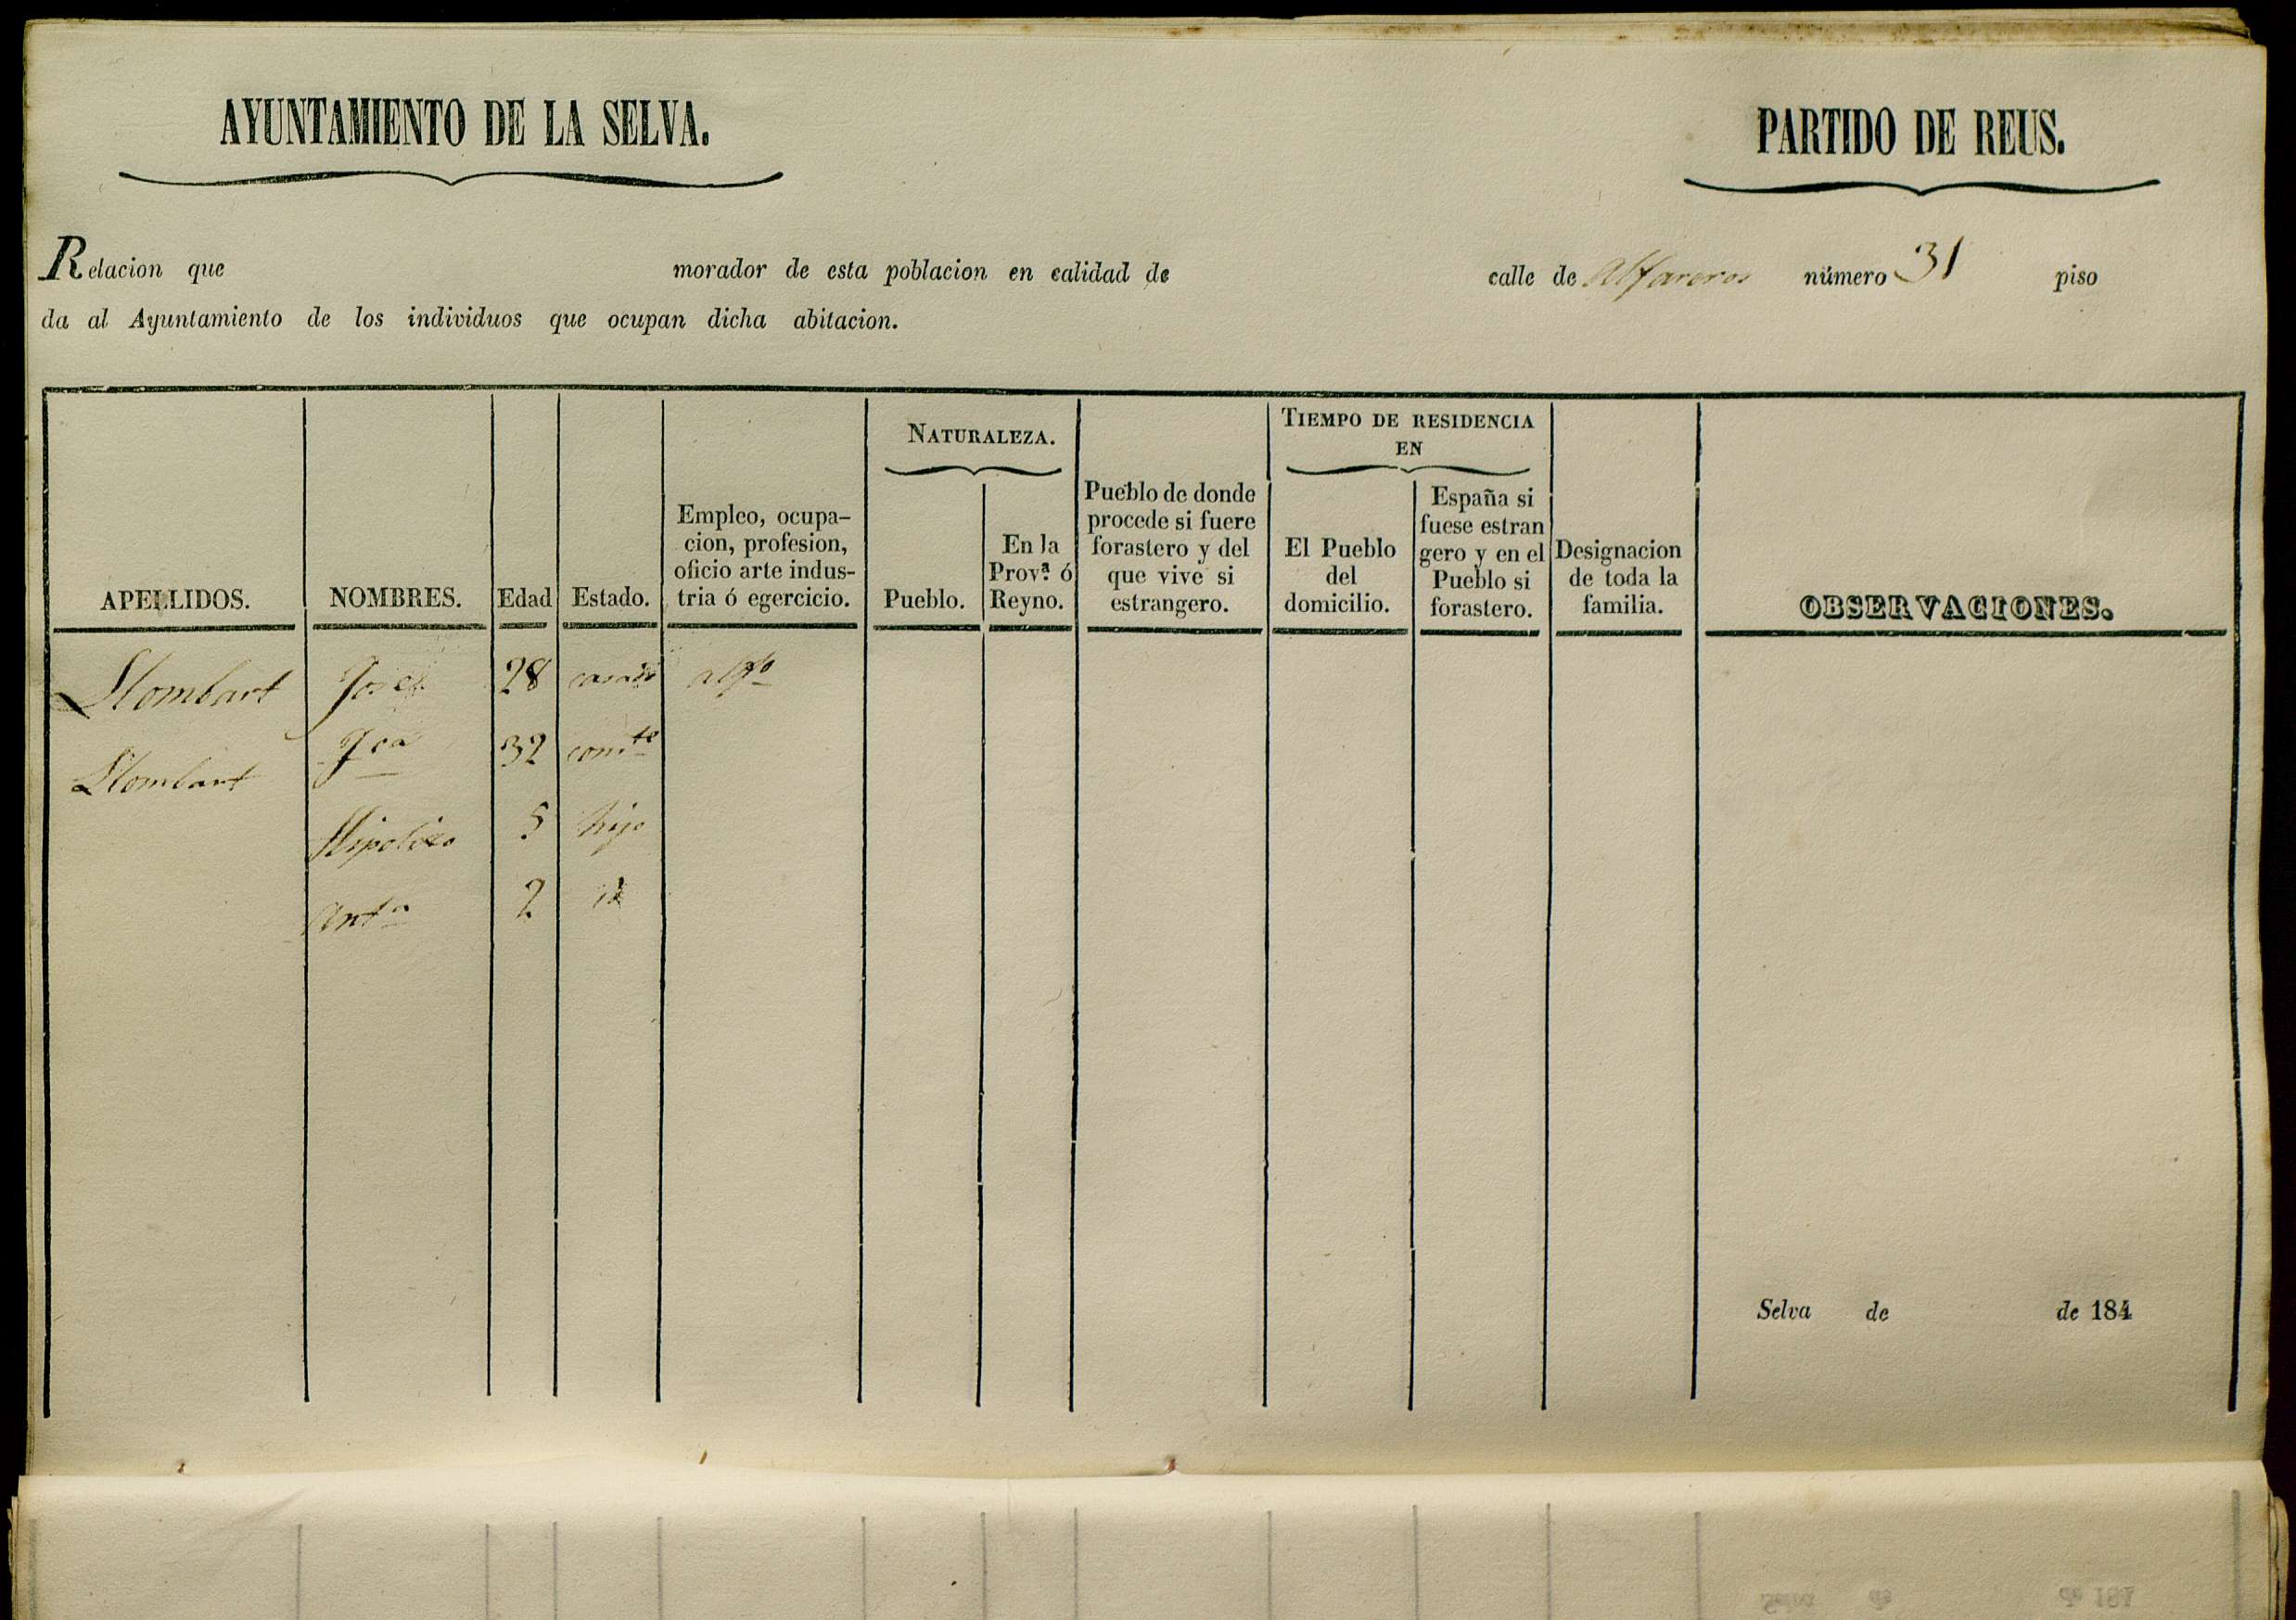 AYUNTAMIENTO DE LA SELVA.
PARTIDO DE REUS.
Relacion que morador de esta poblacion en calidad de calle de Alfareros número 31 piso
da al Ayuntamiento de los individuos que ocupan dicha abitacion.
APELLIDOS.
NOMBRES.
Edad
Estado.
Empleo, ocupa-
cion, profesion,
oficio arte indus-
tria ó egercicio.
NATURALEZA.
Pueblo.
En la
Prov.ª ó
Reyno.
Pueblo de donde
procede si fuere
forastero y del
que vive si
estrangero.
TIEMPO DE RESIDENCIA
EN
El Pueblo
del
domicilio.
España si
fuese estran
gero y en el
Pueblo si
forastero.
Designacion
de toda la
familia.
OBSERVACIONES.
Llombart Jose 28 casado alfo
Llombart Fca 32 conte
Hipolito 5 hijo
Anta 2 id
Selva de de 184